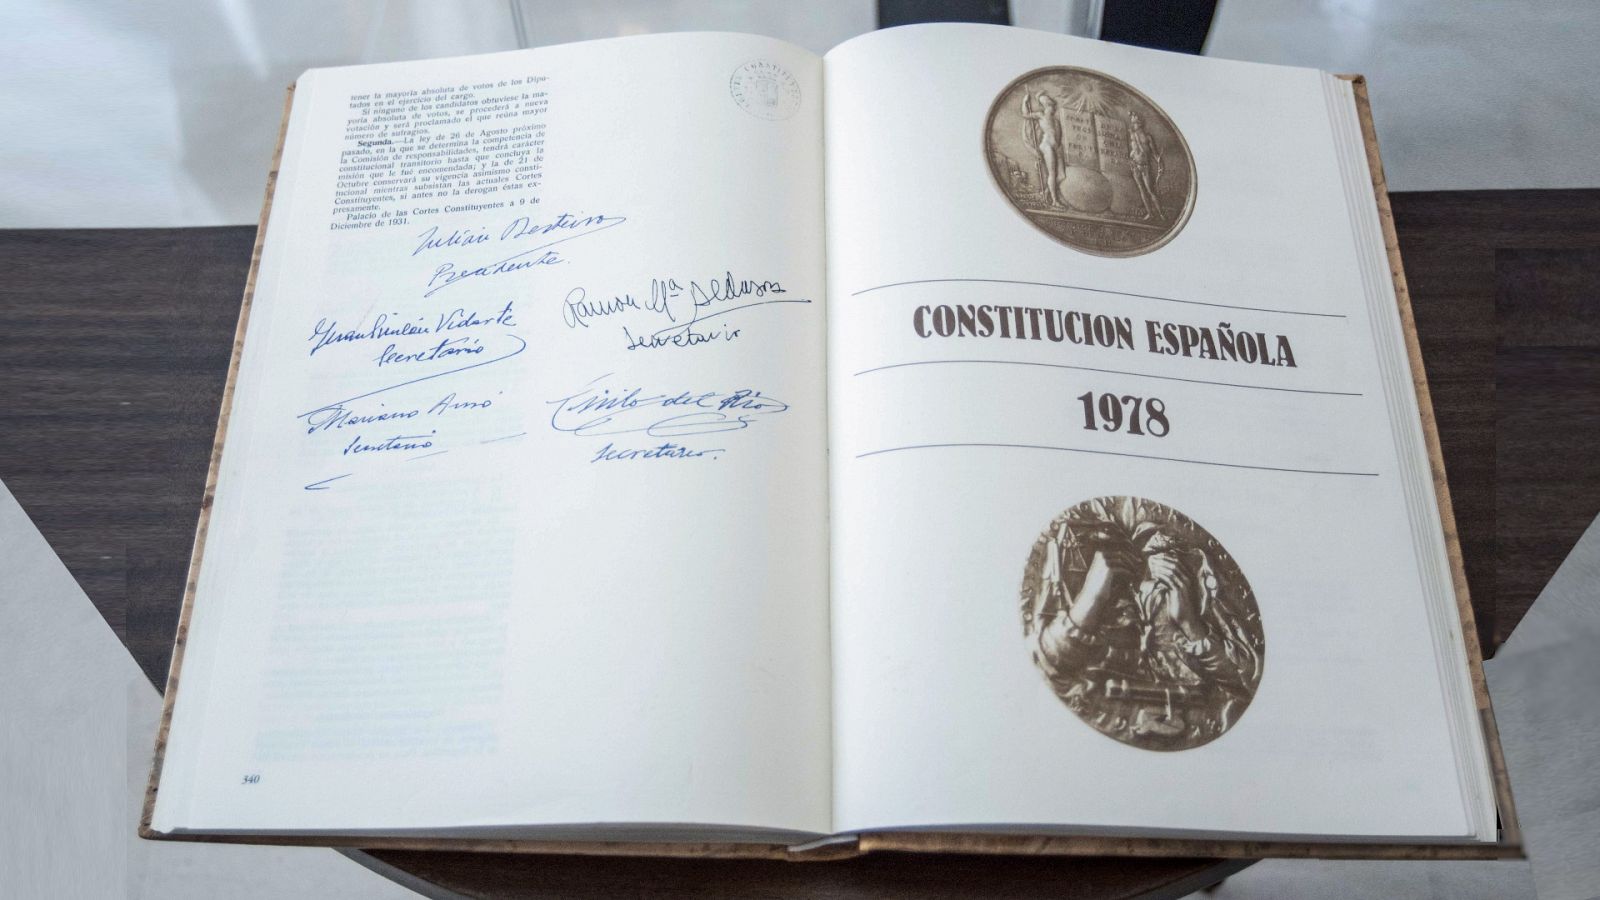 tener la mayoría absoluta de votos de los Dipu-
tados en el ejercicio del cargo.
Si ninguno de los candidatos obtuviese la ma-
yoría absoluta de votos, se procederá a nueva
votación y será proclamado el que reúna mayor
número de sufragios.
Segunda.—La ley de 26 de Agosto próximo
pasado, en la que se determina la competencia de
la Comisión de responsabilidades, tendrá carácter
constitucional transitorio hasta que concluya la
misión que le fué encomendada; y la de 21 de
Octubre conservará su vigencia asimismo consti-
tucional mientras subsistan las actuales Cortes
Constituyentes, si antes no la derogan éstas ex-
presamente.
Palacio de las Cortes Constituyentes a 9 de
Diciembre de 1931.
Julián Besteiro
Presidente.
Vidarte
Secretario
Ramón Mª
Secretario
Mariano
Secretario
Cirilo del Río
Secretario.
340
CONSTITUCION ESPAÑOLA
1978